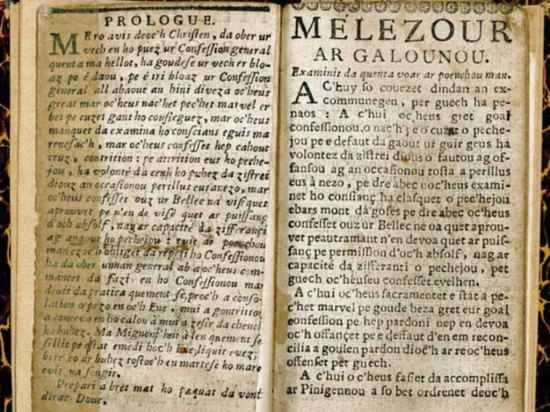 PROLOGUE.
MEro avis deoc'h Christen, da ober ur
vech en ho puez ur Confession general
quenta ma hellot, ha goudese ur vech er bloaz
pe é daou, pe é tri bloaz ur Confession
all abaoue an hini diveza oc'heus
great mar oc'heus nac'het pec'het marvel er
bet pe cuzet gant ho conscieguez, mar oc'heus
manquet da examina ho conscians eguis ma
renesac'h, mar oc'heus confesset hep cahout
ceuz, contrition: pe attrition eus ho pechejou,
ha volonté da cenh ho puhez da zistrei
diouz an occasionou perillus eus anezo, mar
oc'heus confesset ouz ur Bellec na
aprouvet pe n'en de
d'och absolf, nag ar capacité da zifferanci
ag an pechejou:
man ezoc'h obliget da repeti ho Confessionou
ha da ober unnan general ab a oc'heus commancet
da fazi en ho Confessionou mar
deuit da pratica quement-se, pro'h a consolation
o pezo en oc'h Ene
a concevo en ho calon à mui a zesir da chench
ho buhez. Ma Mignonet hui à len quement-se
sellit pe estat emedi hoc'h
beir co ar buhez tostoc'h en martese ho maro
evit na songit.
Prepari a bret mat ho paquat da vont
dirac Doue.
MELEZOUR
AR GALOUNOU.
Examinit da quenta voar ar poenchou man.
AC'huy so couezet dindan an excommunegen,
per guech ha penaos:
A c'hui oc'heus gret goal
confessionou, o nac'h je o cuzat o pechejou
pe e defaut da gaout ur guir geus ha
volontez da zistrei dious o fautou ag offansou
ag an occasionou tosta a perillus
eus à nezo, pe dre abec noc'heus examinet
ho consianç ha clasquet o pec'hejou
ebars mont dá goses pe dre abec oc'heus
confesset ouz ur Bellec ne oa quet aprouvet
peautramant n'en devoa quet ar puissanç
pe permission d'oc'h absolf, nag ar
capacité da zifferanti o pechejou, pet
guech oc'heus confesset evelhen.
A c'hui oc'heus sacramentet e stat a pec'het
marvel pe goude beza gret eur goal
confession pe hep pardoni nep en devoa
oc'h offancet pe e deffaut d'en em reconcilia
a goulen pardon dioc'h ar re oc'heus
offenset per guech.
A c'hui o c'heus fasiet da accomplissa
ar Pinigennou a so bet ordrenet deoc'h